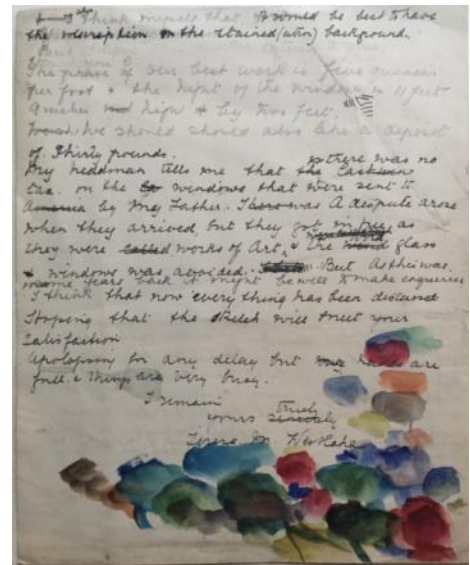 Think myself that it would be best to have
the inscription on the stained background.
The price of our best work is five guineas
per foot & the hight of the window is 11 feet
9 inches high & by two feet.
We should should also like a deposit
of Thirty pounds.
My neddman tells me that there was no
tax on the windows that were sent to
America by My Father. A despute arose
when they arrived, but they got in free as
they were works of Art, & the glass
& windows was avoided. But As this was
some years back it might be well to make enqueries
I think that now every thing has been discused
Hoping that the sketch will meet your
Satisfaction
Apologising for any delay but hands are
full. & things are very busy.
I remain
yours truely
M. Westlake